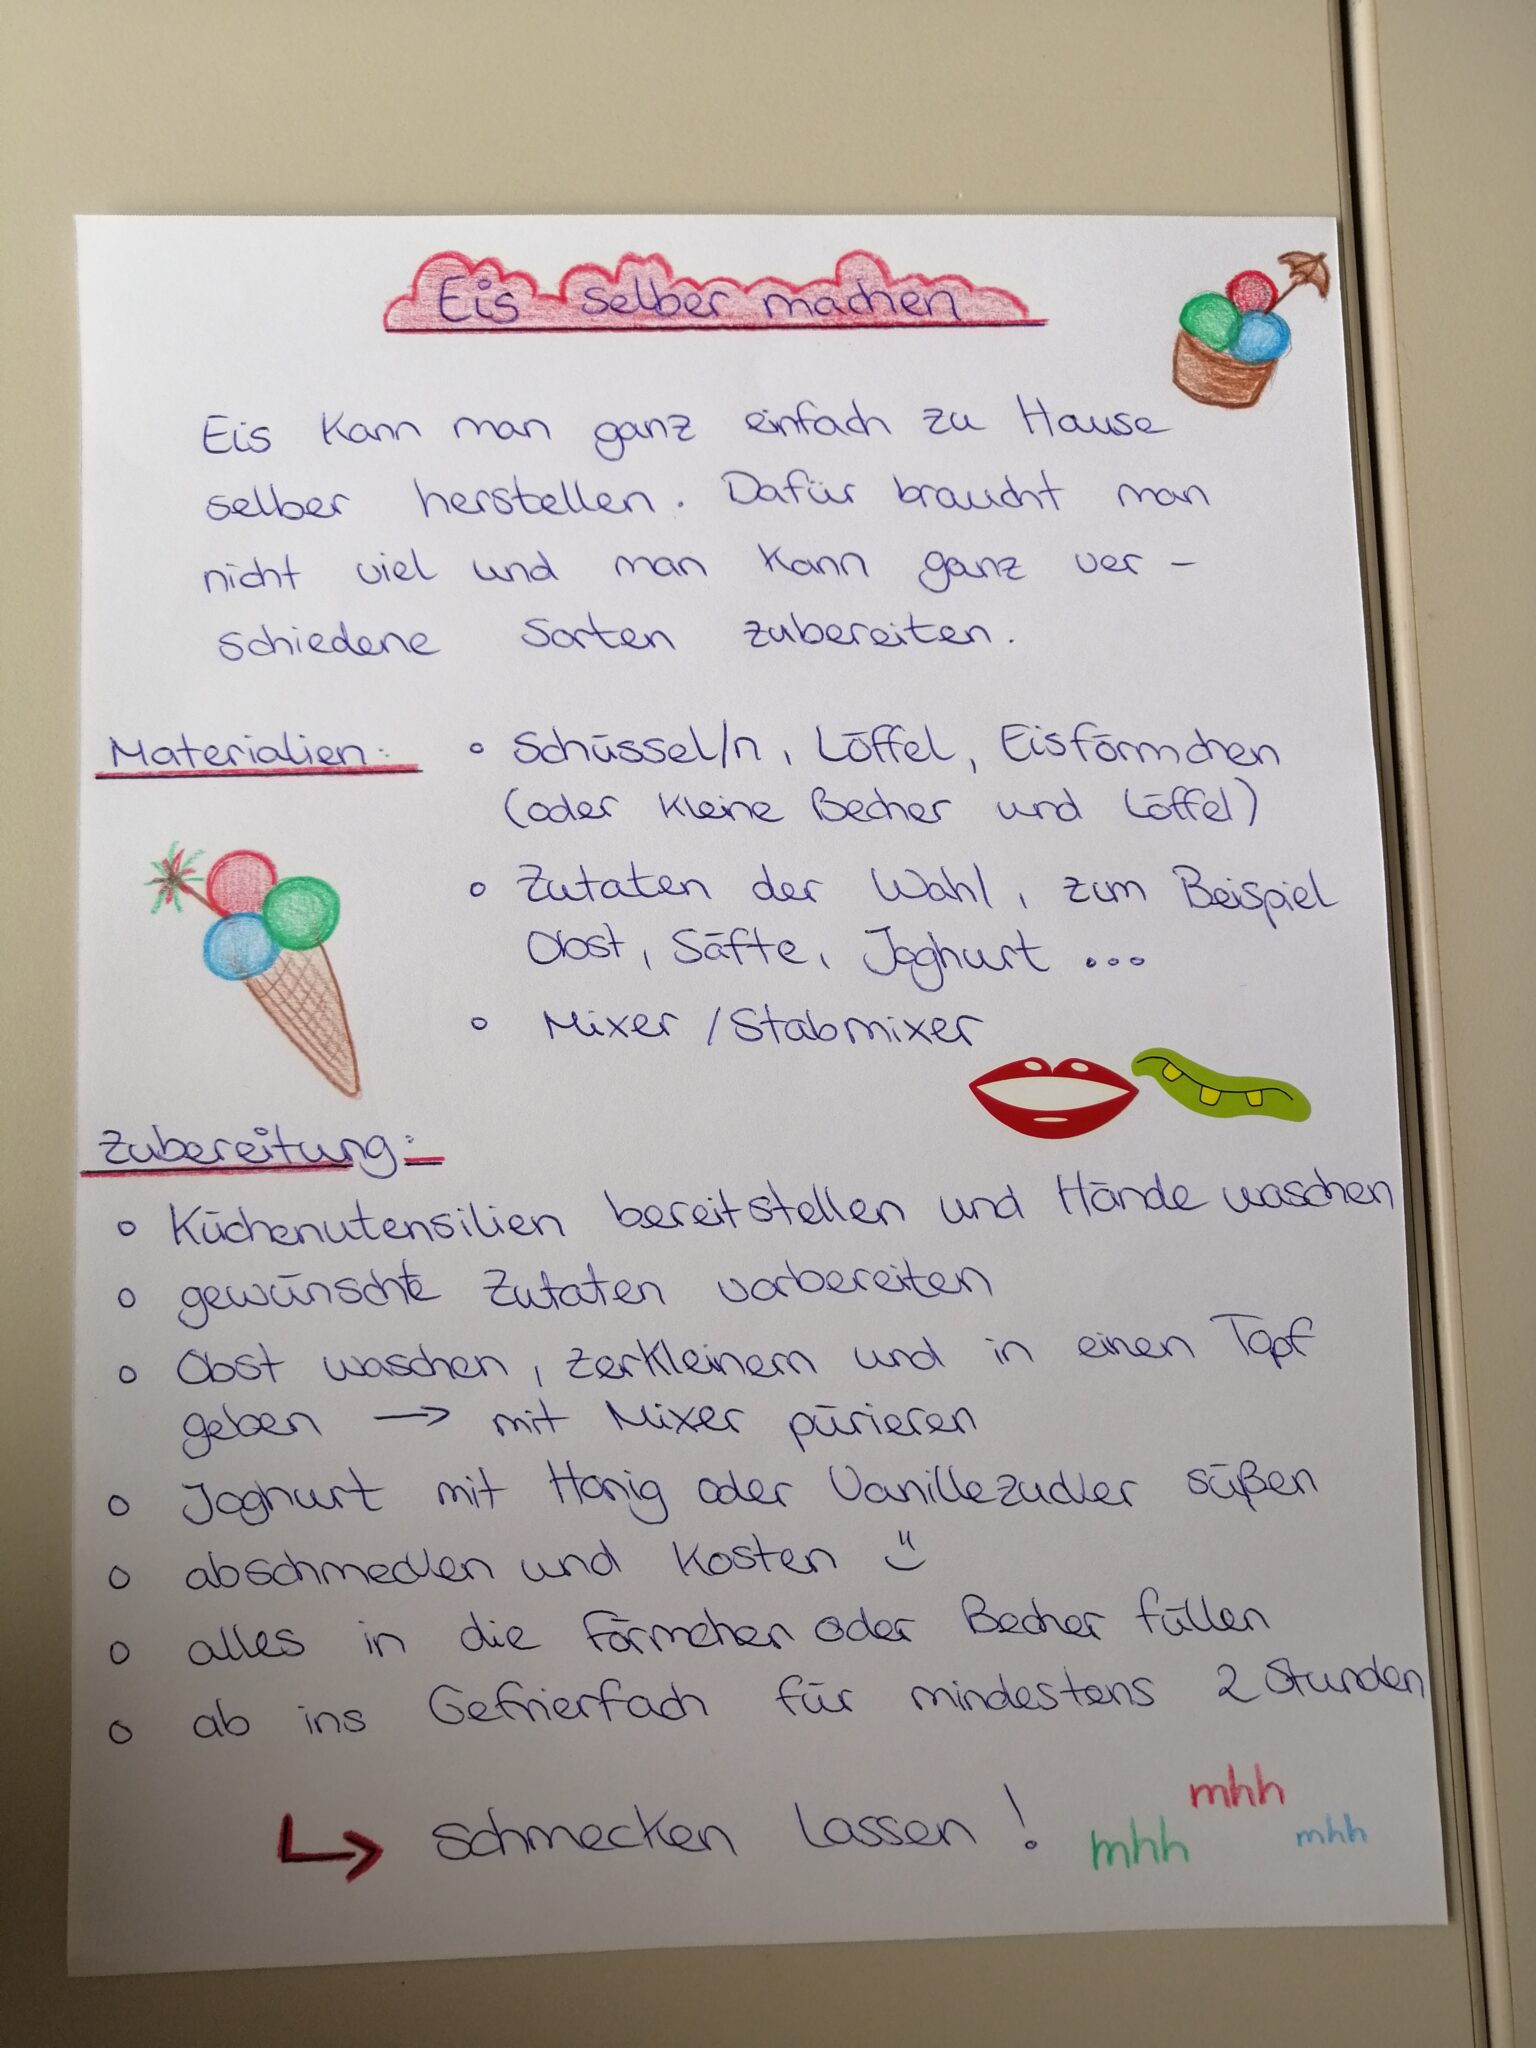 Eis selber machen
Eis kann man ganz einfach zu Hause
selber herstellen. Dafür braucht man
nicht viel und man kann ganz ver-
schiedene Sorten zubereiten.
Materialien:
○ Schüssel/n, Löffel, Eisförmchen
(oder kleine Becher und Löffel)
○ Zutaten der Wahl, zum Beispiel
Obst, Säfte, Joghurt ...
○ Mixer / Stabmixer
Zubereitung:
○ Küchenutensilien bereitstellen und Hände waschen
○ gewünschte Zutaten vorbereiten
○ Obst waschen, zerkleinern und in einen Topf
geben → mit Mixer pürieren
○ Joghurt mit Honig oder Vanillezucker süßen
○ abschmecken und kosten ü
○ alles in die Förmchen oder Becher füllen
○ ab ins Gefrierfach für mindestens 2 Stunden
↳ schmecken lassen! mhh mhh mhh